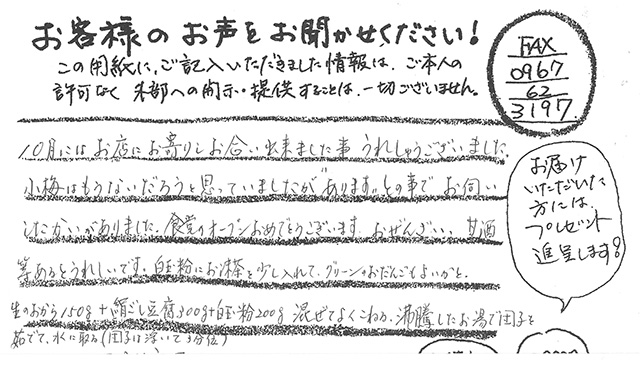 お客様のお声をお聞かせください!
この用紙に、ご記入いただきました情報は、ご本人の
許可なく 外部への開示・提供することは、一切ございません。
FAX
0967
62
3197
10月にはお店にお寄りしお会い出来ました事 うれしゅうございました。
小梅はもうないだろうと思っていましたが"あります"との事でお伺い
したかいがありました。食堂のオープンおめでとうございます。おぜんざい、甘酒
等あるとうれしいです。白玉粉にお抹茶を少し入れて、グリーンのおだんごもよいかと。
生のおから150g+絹ごし豆腐300g+白玉粉200g 混ぜてよくこねる。沸騰したお湯で団子を
茹でて、水に取る(団子は浮いて3分位)
お届け
いただいた
方には、
プレゼント
進呈します!